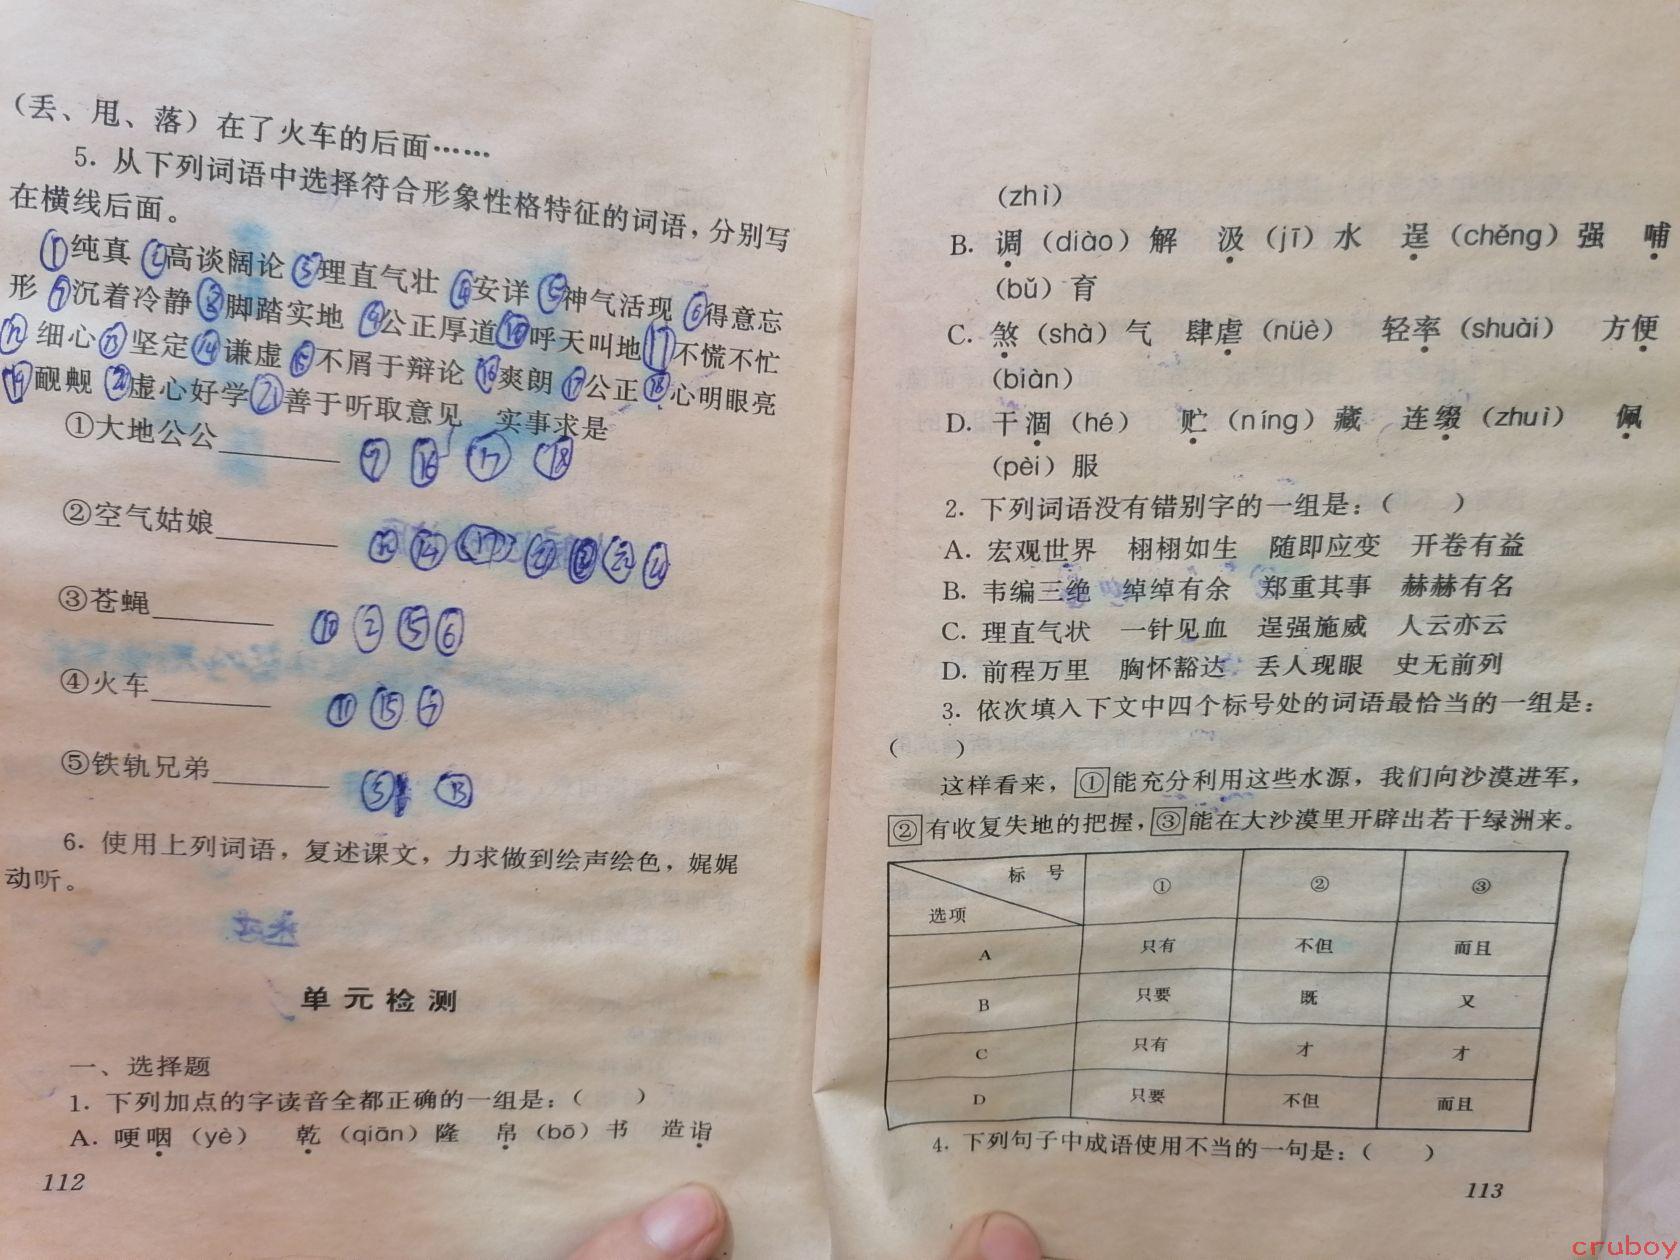 (丢、甩、落)在了火车的后面……
5. 从下列词语中选择符合形象性格特征的词语,分别写
在横线后面。
①纯真 ②高谈阔论 ③理直气壮 ④安详 ⑤神气活现 ⑥得意忘
形 ⑦沉着冷静 ⑧脚踏实地 ⑨公正厚道 ⑩呼天叫地 ⑪不慌不忙
⑫细心 ⑬坚定 ⑭谦虚 ⑮不屑于辩论 ⑯爽朗 ⑰公正 ⑱心明眼亮
⑲靦觍 ⑳虚心好学 ㉑善于听取意见 实事求是
①大地公公 ⑦ ⑯ ⑰ ⑱
②空气姑娘 ⑫ ⑭
③苍蝇 ⑩ ② ⑤ ⑥
④火车 ⑪ ⑮
⑤铁轨兄弟 ⑬
6. 使用上列词语,复述课文,力求做到绘声绘色,娓娓
动听。
单元检测
一、选择题
1. 下列加点的字读音全都正确的一组是:( )
A. 哽咽(yè) 乾(qiān)隆 帛(bō)书 造诣
112
(zhì)
B. 调(diào)解 汲(jī)水 逞(chěng)强 哺
(bǔ)育
C. 煞(shà)气 肆虐(nüè) 轻率(shuài) 方便
(biàn)
D. 干涸(hé) 贮(níng)藏 连缀(zhuì) 佩
(pèi)服
2. 下列词语没有错别字的一组是:( )
A. 宏观世界 栩栩如生 随即应变 开卷有益
B. 韦编三绝 绰绰有余 郑重其事 赫赫有名
C. 理直气状 一针见血 逞强施威 人云亦云
D. 前程万里 胸怀豁达 丢人现眼 史无前列
3. 依次填入下文中四个标号处的词语最恰当的一组是:
( )
这样看来,①能充分利用这些水源,我们向沙漠进军,
②有收复失地的把握,③能在大沙漠里开辟出若干绿洲来。
标号 ① ② ③
选项
A 只有 不但 而且
B 只要 既 又
C 只有 才 才
D 只要 不但 而且
4. 下列句子中成语使用不当的一句是:( )
113
cruboy